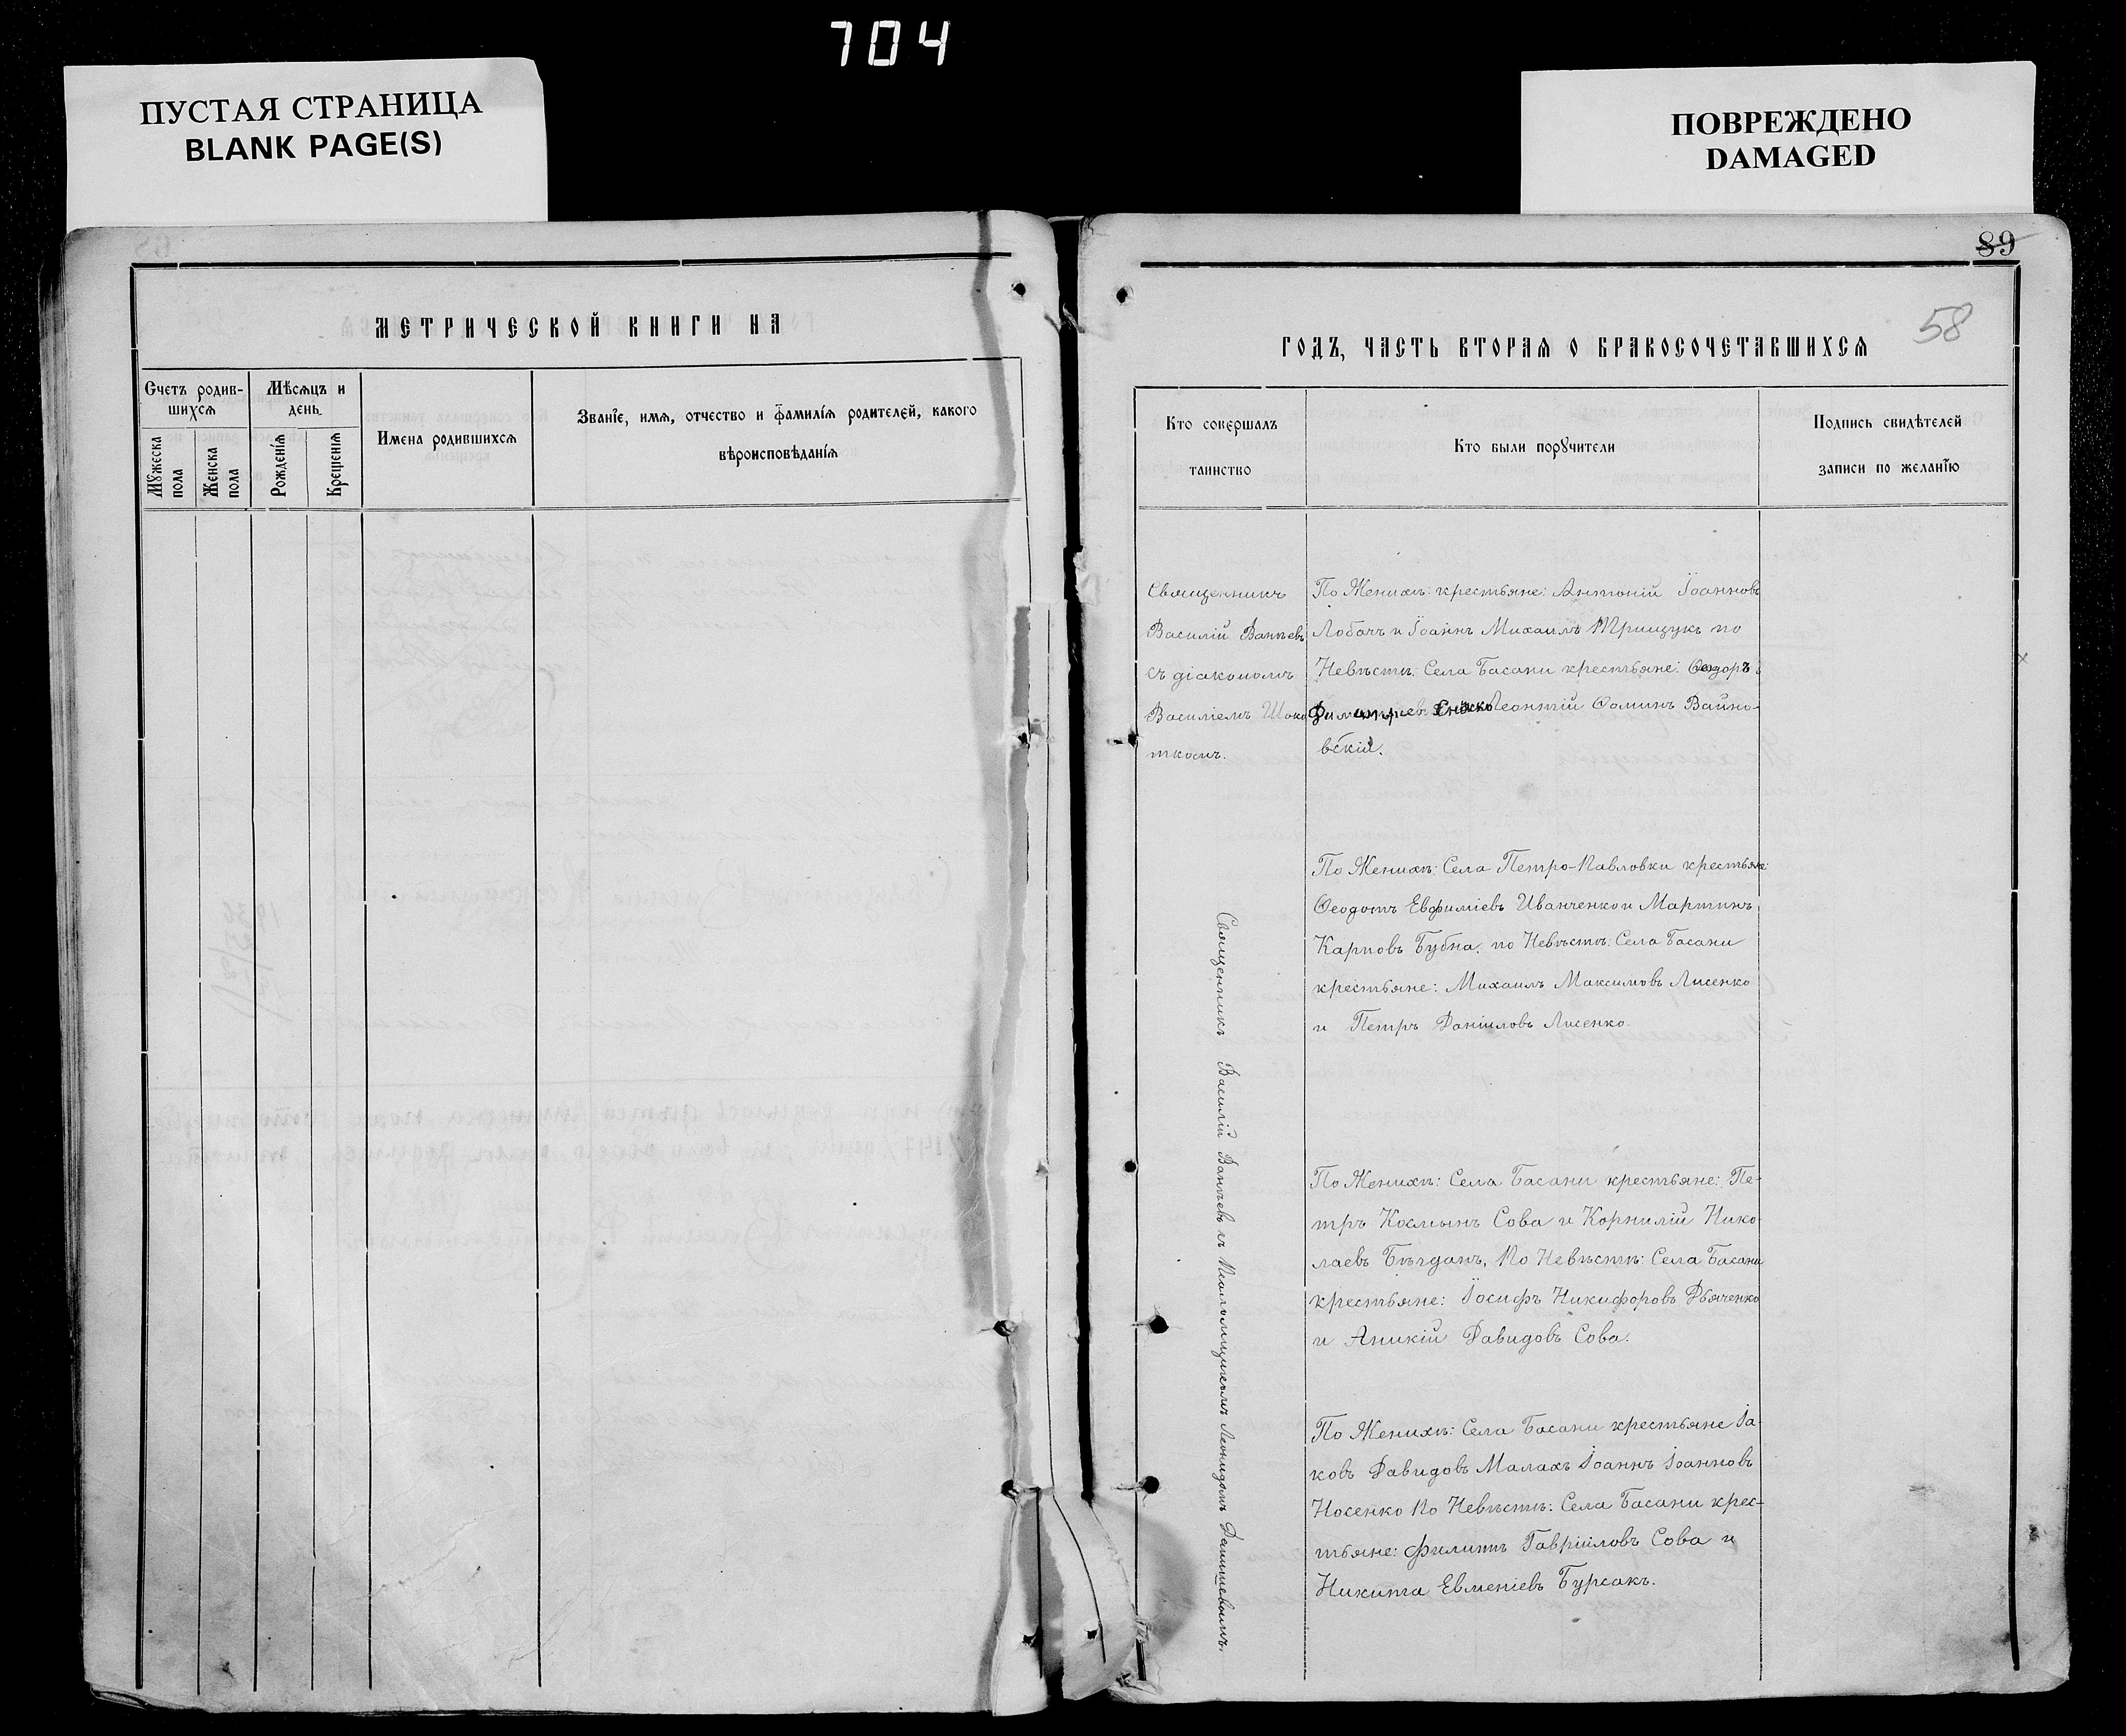 704
ПУСТАЯ СТРАНИЦА
BLANK PAGE(S)
ПОВРЕЖДЕНО
DAMAGED
МЕТРИЧЕСКОЙ КНИГИ НА
Счетъ родив-
шихсѧ
Мѣсѧцъ и
день
Имена родившихсѧ
Званіе, имѧ, отчество и фамиліѧ родителей, какого
вѣроисповѣданіѧ
Мꙋжеска
пола
Женска
пола
Рожденіѧ
Крещеніѧ
89
58
ГОДЪ, ЧАСТЬ ВТОРАѦ О БРАКОСОЧЕТАВШИХСѦ
Кто совершалъ
таинство
Кто были порꙋчители
Подпись свидѣтелей
записи по желанїю
Священникъ
Василій
съ діакономъ
Василіемъ
ткомъ.
По Женихѣ: крестьяне: Антоній Іоанновъ
Лобачъ и Іоаннъ Михаилъ Грищукъ по
Невѣстѣ: Села Басани крестьяне: Ѳеодоръ
Леонтій Ѳоминъ Вайно-
вскій.
По Женихѣ: Села Петро-Павловки крестьяне:
Ѳеодотъ Евфиміевъ Иванченко и Мартинъ
Карповъ Бубна. по Невѣстѣ: Села Басани
крестьяне: Михаилъ Максимовъ Лисенко
и Петръ Даніиловъ Лисенко.
По Женихѣ: Села Басани крестьяне: Пе-
тръ Космынъ Сова и Корнилій Нико-
лаевъ Бѣгданъ, По Невѣстѣ: Села Басани
крестьяне: Іосифъ Никифоровъ Дьяченко
и Аникій Давидовъ Сова.
По Женихѣ: Села Басани крестьяне Іа-
ковъ Давидовъ Малахъ Іоаннъ Іоанновъ
Носенко По Невѣстѣ: Села Басани крес-
тьяне: Филиппъ Гавріиловъ Сова и
Никита Евменіевъ Бурсакъ.
Священникъ Василій съ Псаломщикомъ Леонидомъ